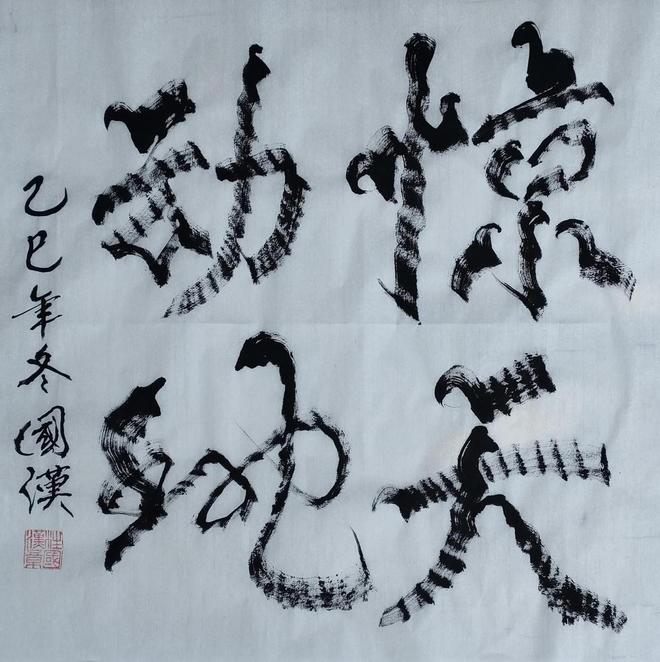 惊天
动地
乙巳年冬國漢
汪國漢章